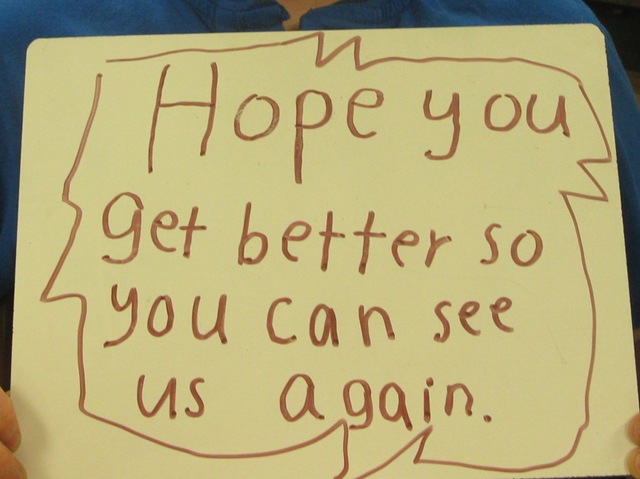 Hope you
get better so
you can see
us again.